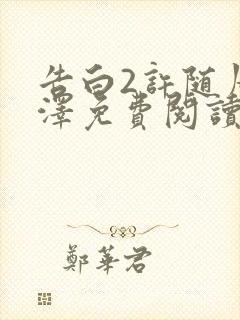 告白2許随
澤免費閱讀
鄭華君